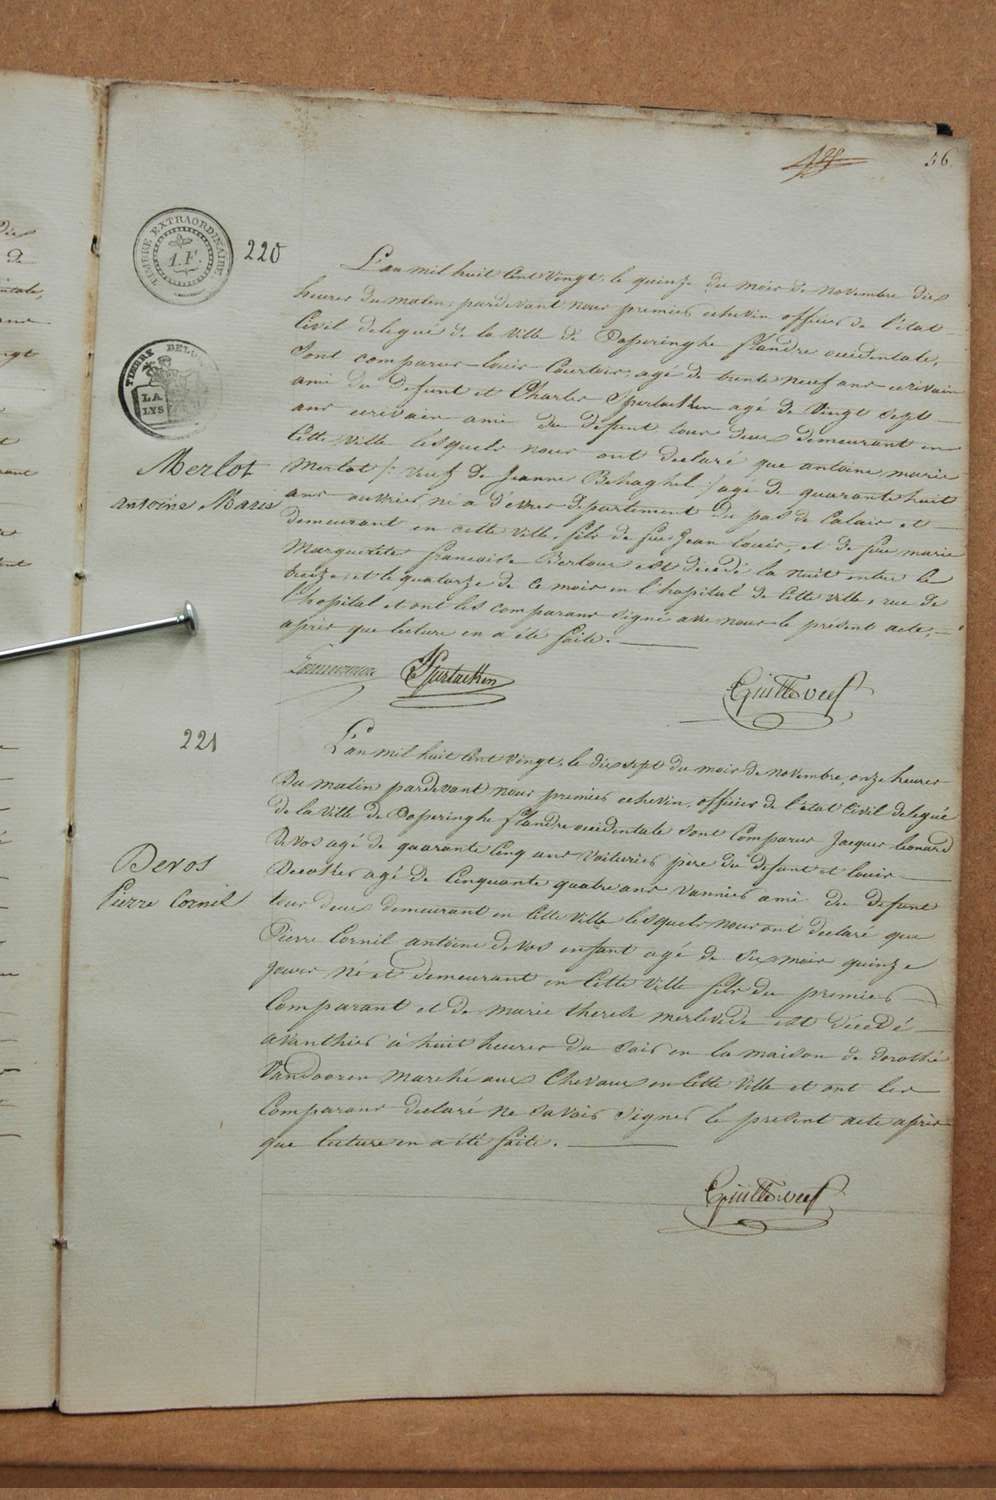 56
TIMBRE EXTRAORDINAIRE
1.F.
220
L'an mil huit Cent Vingt, le quinze du mois de novembre dix
heures du matin, pardevant nous premier echevin officier de l'état
Civil delegué de la Ville de Poperinghe flandre occidentale,
Sont comparus louis Courtois, agé de trente neuf ans ecrivain
ami du defunt et Charles Spetaethen agé de Vingt Sept
ans ecrivain ami du defunt tous deux demeurant en
Cette Ville lesquels nous ont declaré que antoine marie
Merlot /: veuf de Jeanne Behaghel :/ agé de quarante huit
ans ouvrier, né à d'evres departement du pas de Calais et
demeurant en cette ville, fils de feu Jean louis, et de feu marie
Marguerite francoise Bertoux est decedé la nuit entre le
treize, et le quatorze de ce mois en l'hopital de Cette ville, rue de
l'hopital et ont les comparans signé avec nous le présent acte,
après que lecture en a été faite.
TIMBRE BELG
LA
LYS
Merlot
antoine Marie
221
L'an mil huit Cent Vingt, le dix sept du mois de novembre, onze heures
du matin pardevant nous premier echevin, officier de l'état Civil delegué
de la Ville de Poperinghe flandre occidentale sont Comparus Jacques leonard
Devos agé de quarante Cinq ans Voiturier père du defunt et louis
Decoster agé de Cinquante quatre ans Vannier ami du defunt
tous deux demeurant en Cette Ville lesquels nous ont declaré que
Pierre Cornil antoine devos enfant agé de Six mois quinze
jours né et demeurant en Cette Ville fils du premier
Comparant et de marie therese merlevede est décédé
avanthier à huit heures du Soir en la maison de dorothé
Vandooren Marché aux Chevaux en Cette Ville et ont les
Comparans declaré ne savoir Signer le present acte après
que lecture en a été faite.
Devos
Pierre Cornil